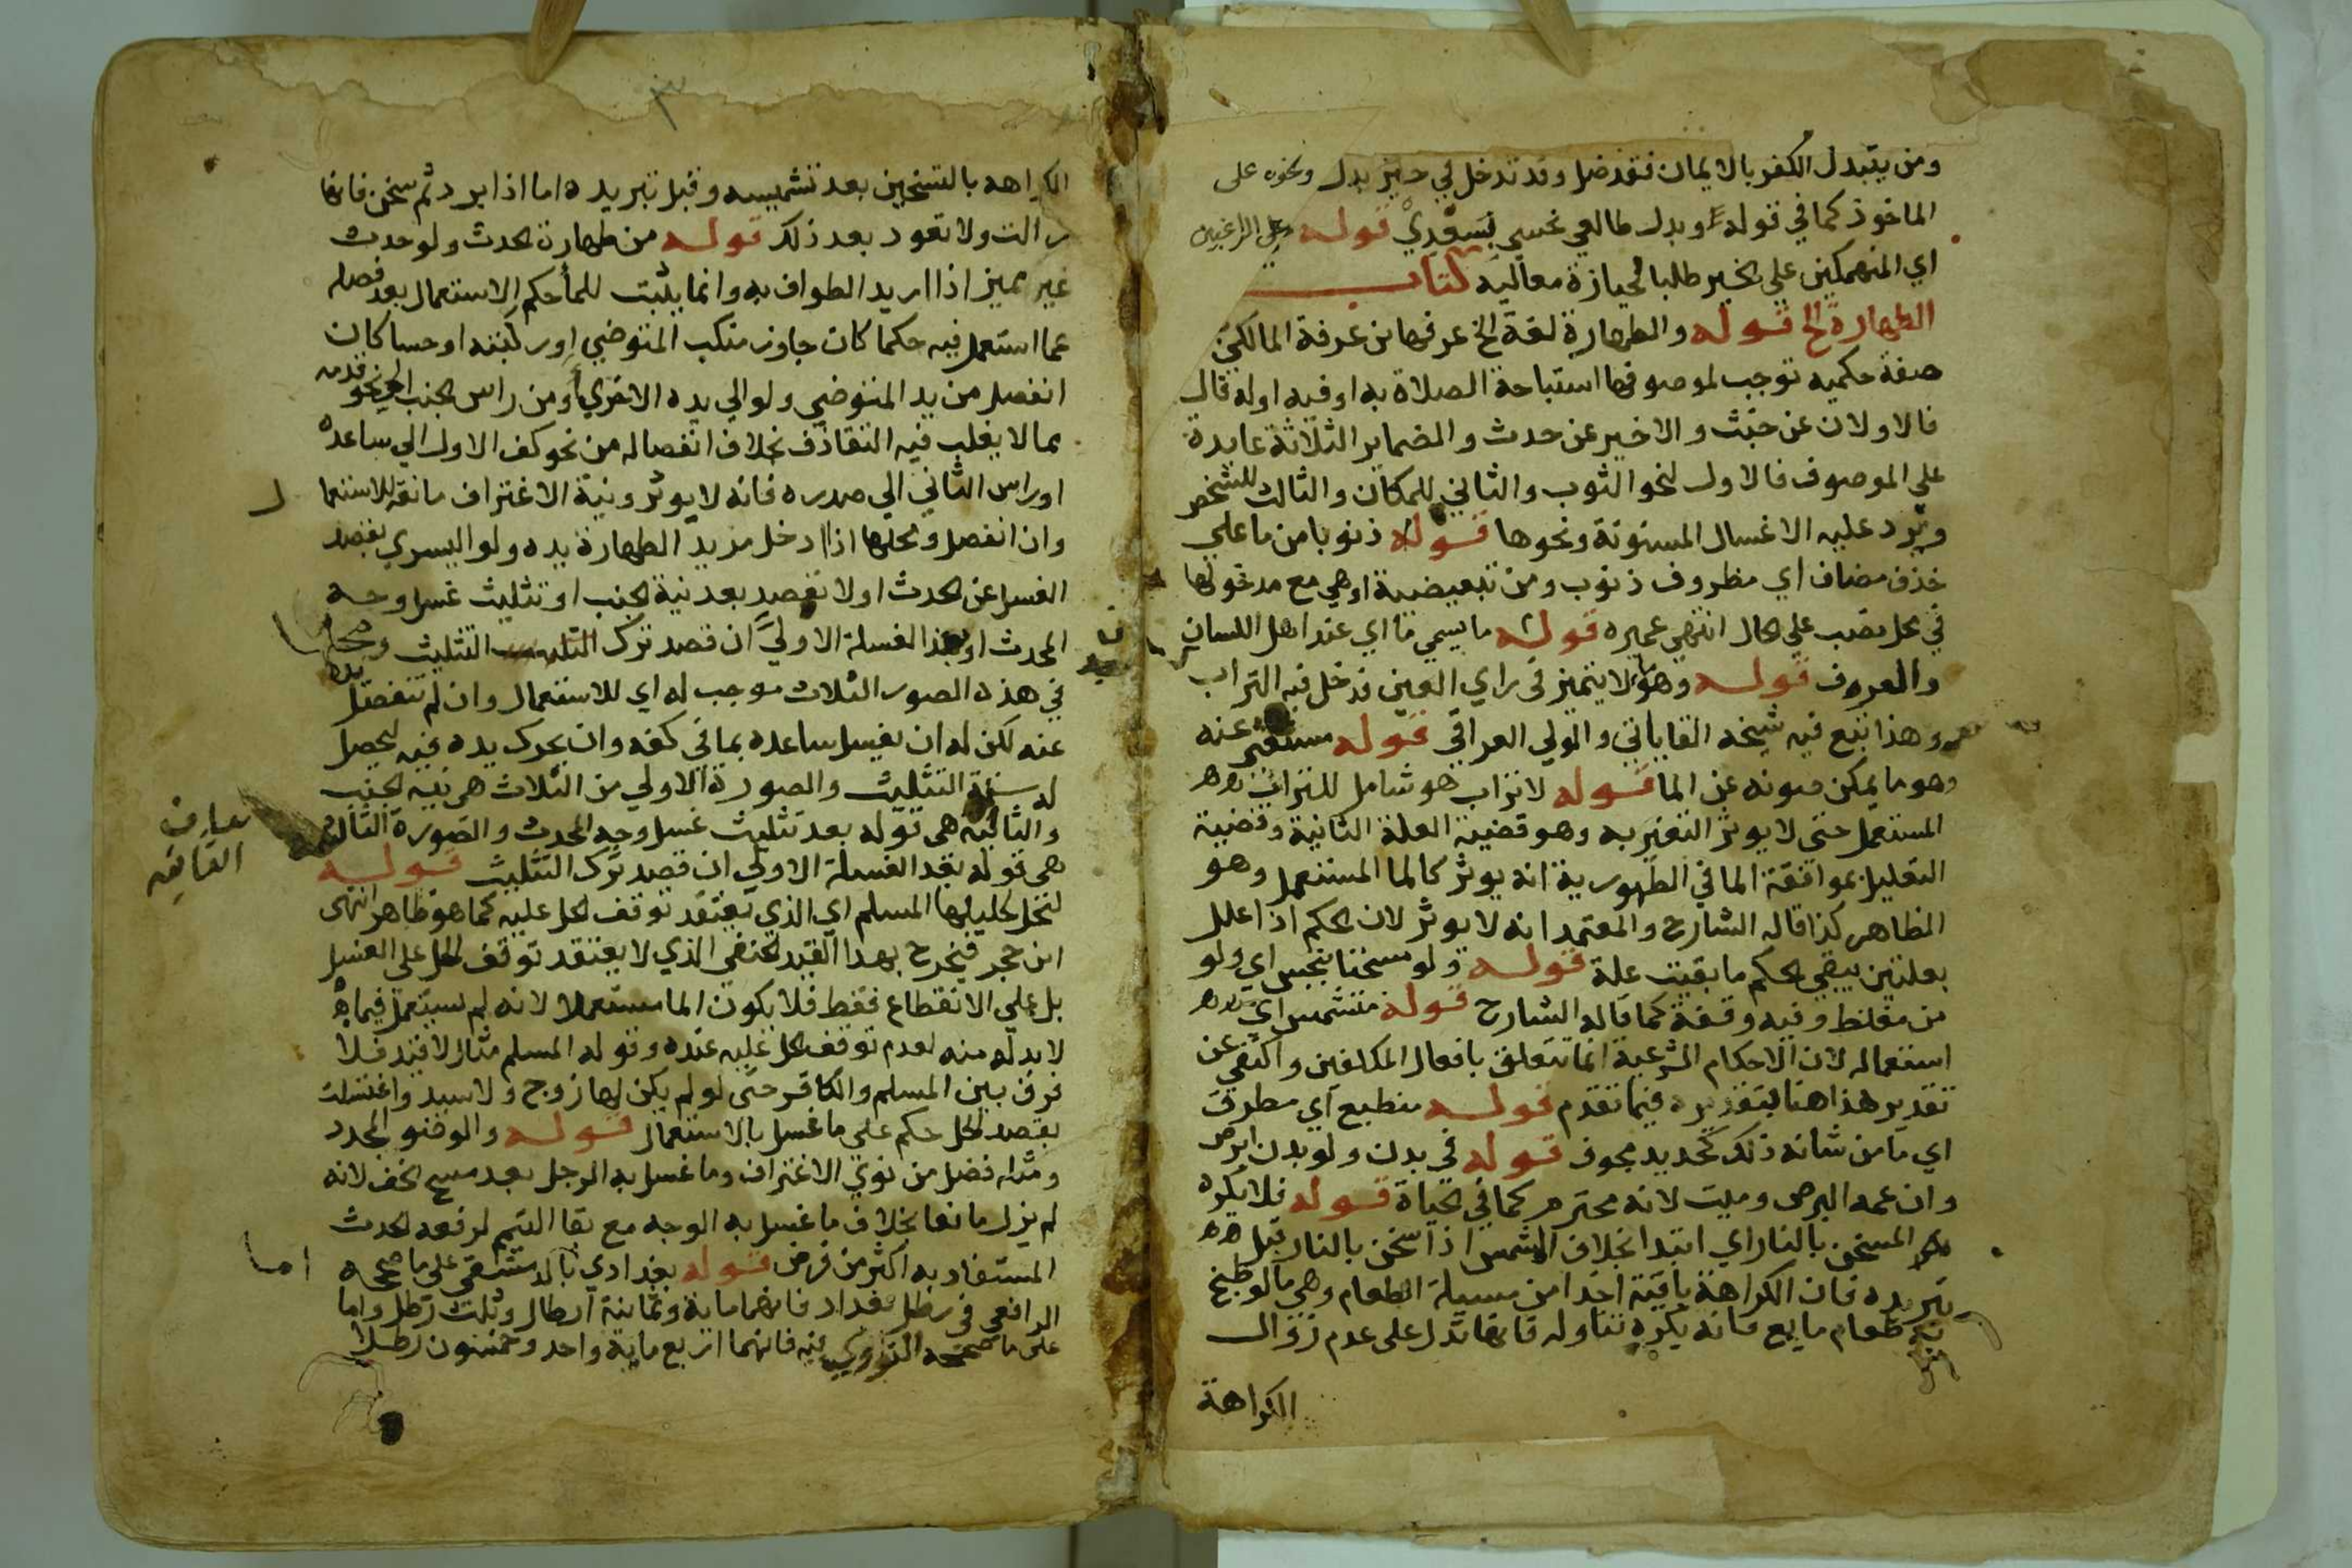 ومن يتبدل الكفر بالايمان فقد ضل وقد تدخل في حيز بدل ونحوه على
الماخوذ كما في قوله وبدل طالعي نحسي بسعدي قوله وعلى الراغبين
اي المنهمكين على الخير طلبا لحيازة معاليه كتاب
الطهارة الخ قوله والطهارة لغة الخ عرفها ابن عرفة المالكي
صفة حكمية توجب لموصوفها استباحة الصلاة به او فيه او له قال
فالاولان عن خبث والاخير عن حدث والضماير الثلاثة عايدة
على الموصوف فالاول لنحو الثوب والثاني للمكان والثالث للشخص
ويرد عليه الاغسال المسنونة ونحوها قوله ذنوبا من ما على
حذف مضاف اي مظروف ذنوب ومن تبعيضية اوهي مع مدخولها
في محل نصب على الحال انتهى عميره قوله ما يسمى ما اي عند اهل اللسان
والعرف قوله وهو ما لا يتميز في راي العين فدخل فيه التراب
وهذا تبع فيه شيخه القاياتي والولي العراقي قوله مستغنى عنه
وهو ما يمكن صونه عن الما قوله لا تراب هو شامل للتراب
المستعمل حتى لا يوثر التغير به وهو قضية العلة الثانية وقضية
التعليل بموافقة الما في الطهورية انه يوثر كالما المستعمل وهو
الظاهر كذا قاله الشارح والمعتمد انه لا يوثر لان الحكم اذا علل
بعلتين يبقى الحكم ما بقيت علة قوله ولو مسخنا بنجس اي ولو
من مغلظ وفيه وقفة كما قاله الشارح قوله متشمس اي
استعماله لان الاحكام الشرعية انما تتعلق بافعال المكلفين واكتفى عن
تقدير هذا هنا بتقديره فيما تقدم قوله منطبع اي مطرق
اي ما من شانه ذلك كحديد مجوف قوله في بدن ولو بدن ابرص
وان عمه البرص وميت لانه محترم كما في الحياة قوله فلا يكره
المسخن بالنار اي ابتدا بخلاف المشمس اذا سخن بالنار قبل
تبريده فان الكراهة باقية اخذا من مسيلة الطعام وهي ما لو طبخ
به طعام مايع فانه يكره تناوله فانها تدل على عدم زوال
الكراهة
الكراهه بالتسخين بعد تشميسه وقبل تبريده اما اذا برد ثم سخن فانها
زالت ولا تعود بعد ذلك قوله من طهارة الحدث ولو حدث
غير مميز اذا اريد الطواف به وانما يثبت للما حكم الاستعمال بعد فصله
عما استعمل فيه حكما كان جاوز منكب المتوضي او ركبته او حسا كان
انفصل من يد المتوضي ولو الي يده الاخري او من راس الجنب الي نحو قدمه
بما لا يغلب فيه التقاذف بخلاف انفصاله من نحو كف الاول الي ساعده
او راس الثاني الي صدره فانه لا يوثر ونية الاغتراف مانعة للاستعما
ل
وان انفصل ومحلها اذا ادخل مريد الطهارة يده ولو اليسري بقصد
الغسل عن الحدث او لا بقصد بعد نية الجنب او تثليث غسل وجه
المحدث او بعد الغسلة الاولي ان قصد ترك التثليث
في هذه الصور الثلاث موجب له اي للاستعمال وان لم تنفصل يده
عنه لكن له ان يغسل ساعده بما في كفه وان يحرك يده فيه ليحصل
له سنة التثليث والصورة الاولي من الثلاث هي نية الجنب
والثانية هي قوله بعد تثليث غسل وجه المحدث والصورة الثالثة
هي قوله بعد الغسلة الاولي ان قصد ترك التثليث قوله
لتحل لحليلها المسلم اي الذي يعتقد توقف الحل عليه كما هو ظاهر انتهى
ابن حجر فيخرج بهذا القيد الحنفي الذي لا يعتقد توقف الحل على الغسل
بل على الانقطاع فقط فلا يكون الما مستعملا لانه لم يستعمل فيما
لا بد له منه لعدم توقف الحل عليه عنده وقوله المسلم مثال لا قيد فلا
فرق بين المسلم والكافر حتى لو لم يكن لها زوج ولا سيد واغتسلت
بقصد الحل حكم على ما غسل بالاستعمال قوله والوضو المجدد
ومثله فضل من نوي الاغتراف وما غسل به الرجل بعد مسح الخف لانه
لم يزل مانعا بخلاف ما غسل به الوجه مع بقا التيمم لرفعه الحدث
المستفاد به اكثر من فرض قوله بغدادي بالدمشقي على ما صححه
اما
الرافعي في رطل بغداد فانهما ماية وثمانية ارطال وثلث رطل واما
على ما صححه النووي فيه فانهما اربع ماية واحد وخمسون رطلا